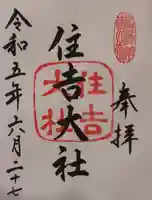 奉拝
住吉大社
令和五年六月二十七